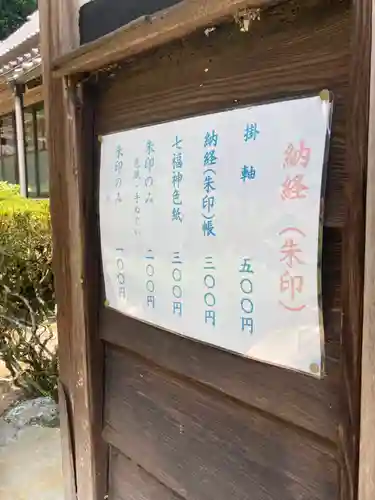 納経(朱印)
掛軸 五〇〇円
納経(朱印)帳 三〇〇円
七福神色紙 三〇〇円
朱印のみ 二〇〇円
朱印のみ 一〇〇円